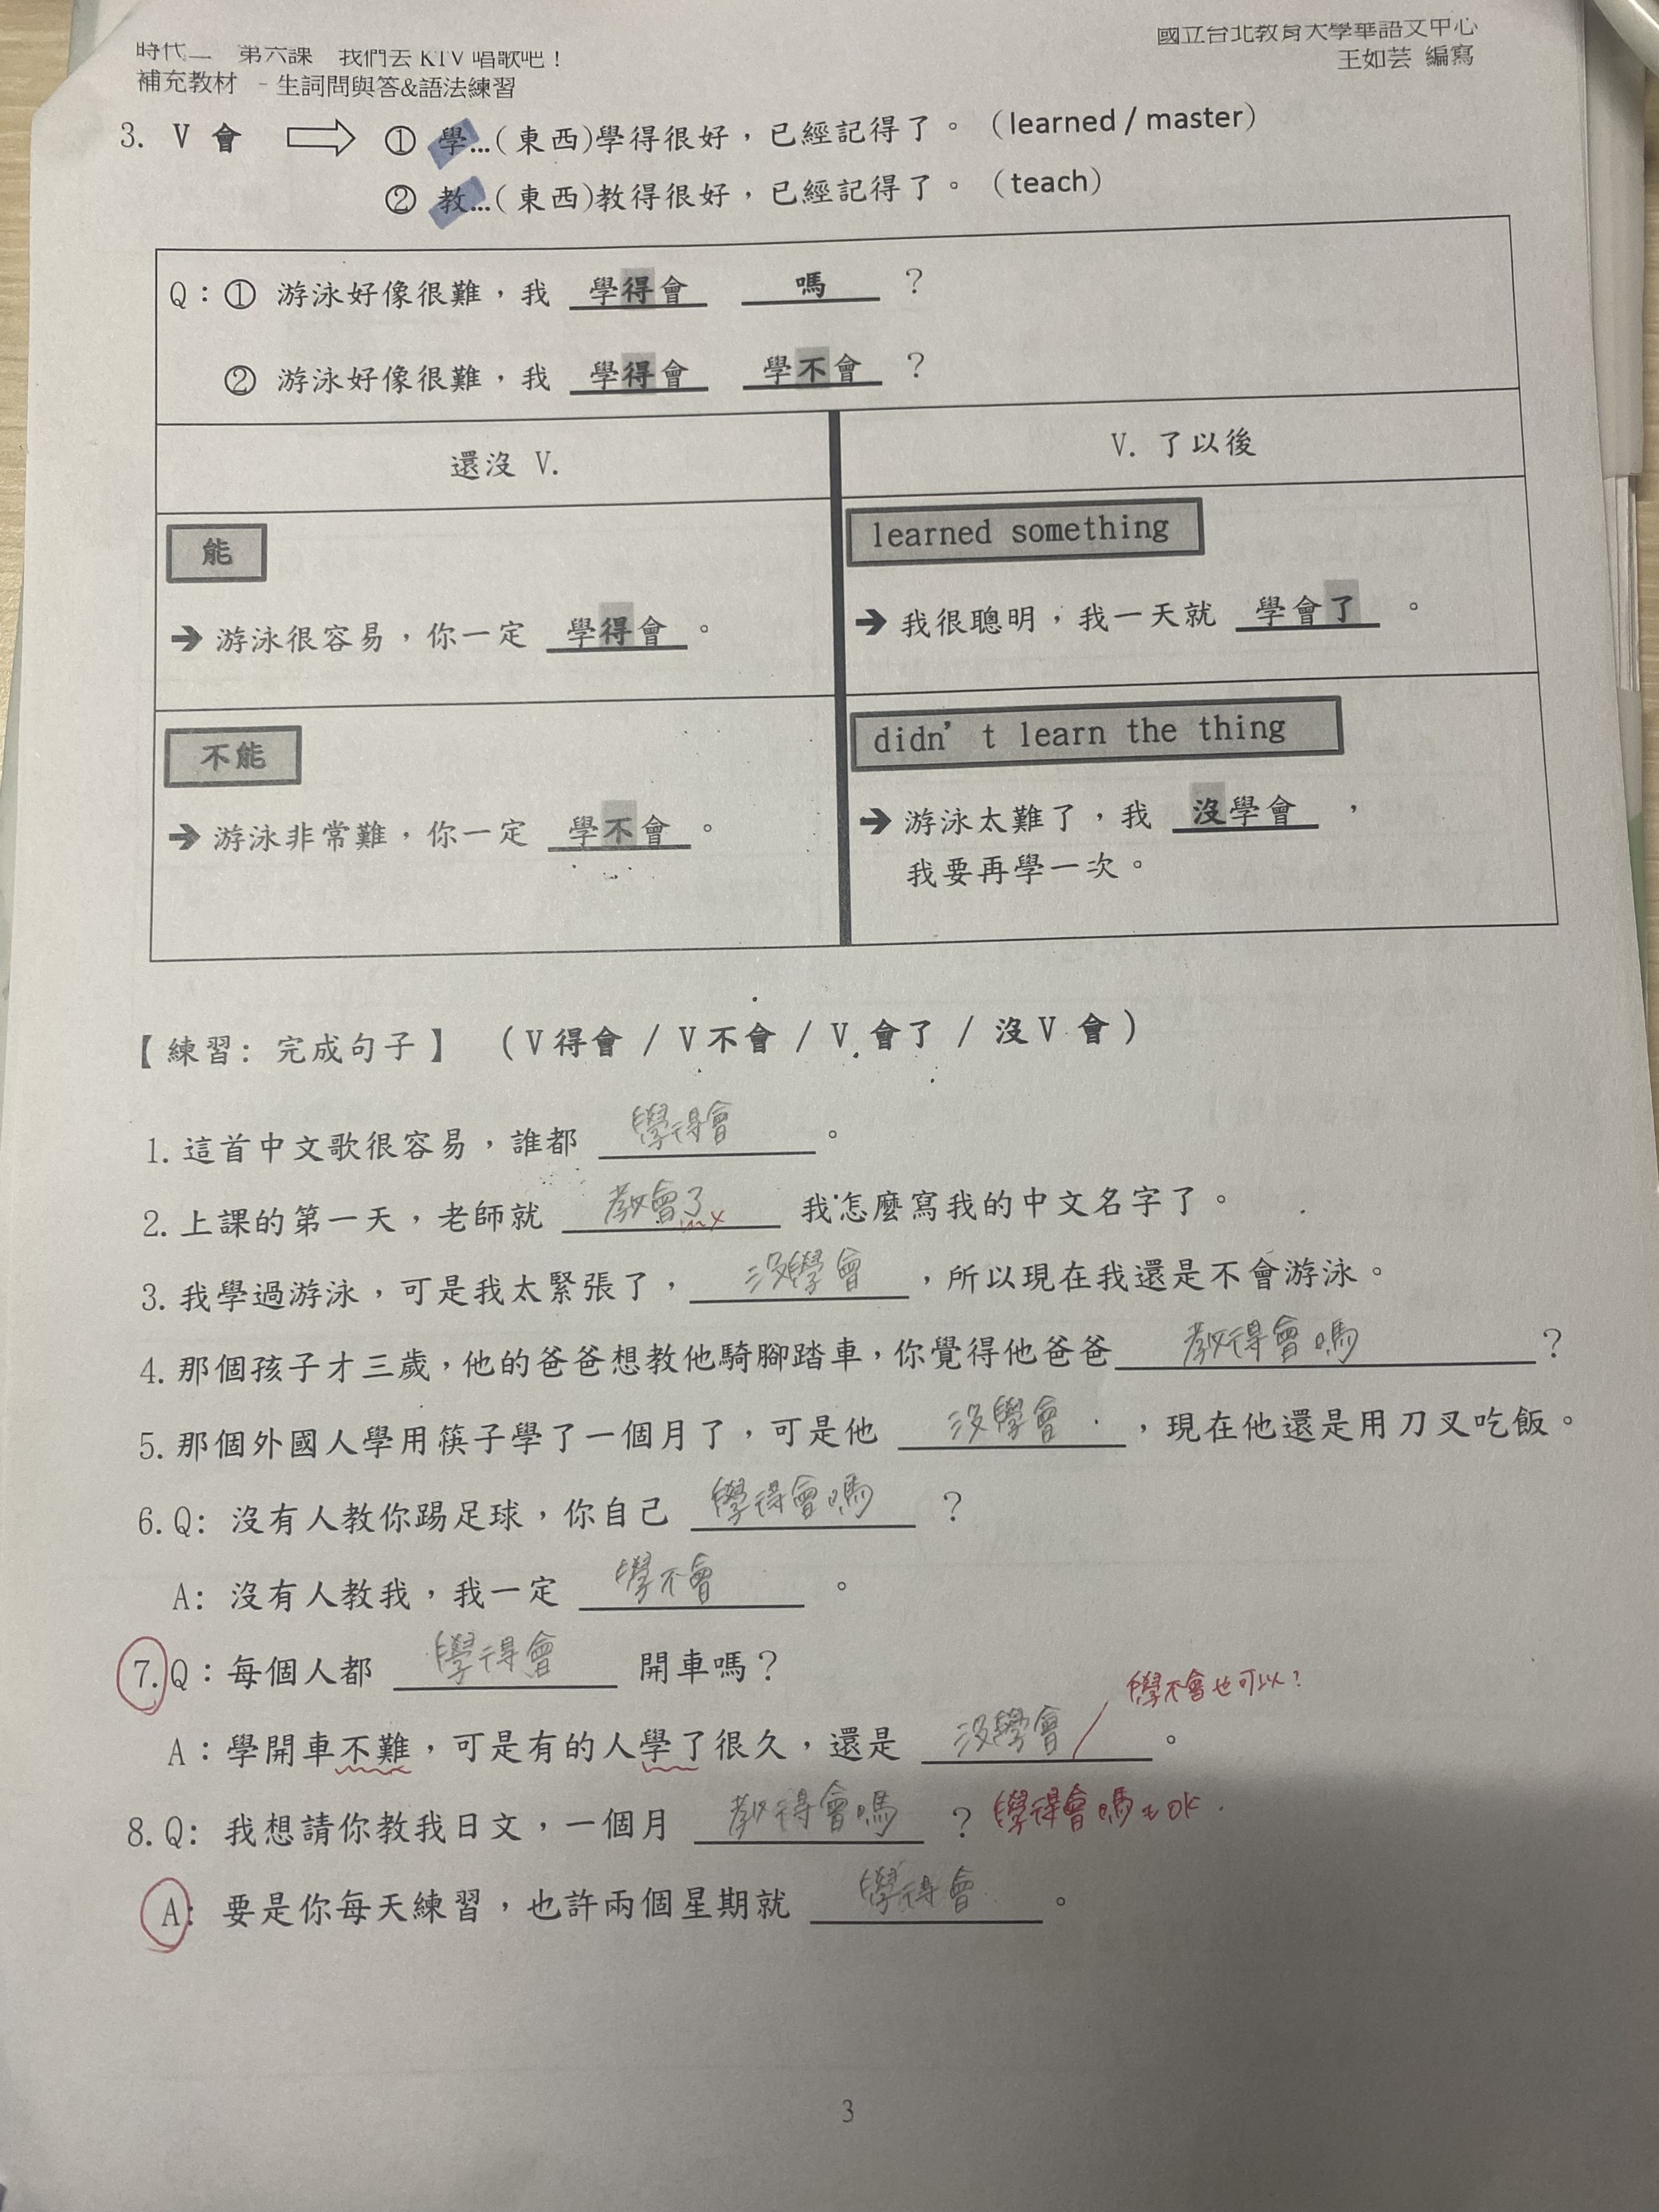 時代二 第六課 我們去 KTV 唱歌吧！
國立台北教育大學華語文中心
補充教材 - 生詞問與答&語法練習
王如芸 編寫
3. V 會 ① 學…(東西)學得很好，已經記得了。（learned / master）
② 教…(東西)教得很好，已經記得了。（teach）
Q：① 游泳好像很難，我 學得會 嗎 ？
② 游泳好像很難，我 學得會 學不會 ？
還沒 V.
V. 了以後
能
➔ 游泳很容易，你一定 學得會 。
learned something
➔ 我很聰明，我一天就 學會了 。
不能
➔ 游泳非常難，你一定 學不會 。
didn't learn the thing
➔ 游泳太難了，我 沒學會 ，
我要再學一次。
【練習: 完成句子】 （V得會 / V不會 / V 會了 / 沒V 會）
1. 這首中文歌很容易，誰都 學得會 。
2. 上課的第一天，老師就 教會了 我怎麼寫我的中文名字了。
3. 我學過游泳，可是我太緊張了，沒學會 ，所以現在我還是不會游泳。
4. 那個孩子才三歲，他的爸爸想教他騎腳踏車，你覺得他爸爸 教得會嗎 ？
5. 那個外國人學用筷子學了一個月了，可是他 沒學會 ，現在他還是用刀叉吃飯。
6. Q: 沒有人教你踢足球，你自己 學得會嗎 ？
A: 沒有人教我，我一定 學不會 。
7. Q：每個人都 學得會 開車嗎？
學不會也可以?
A：學開車不難，可是有的人學了很久，還是 沒學會 。
8. Q: 我想請你教我日文，一個月 教得會嗎 ？ 學得會嗎 也 OK.
A: 要是你每天練習，也許兩個星期就 學得會 。
3